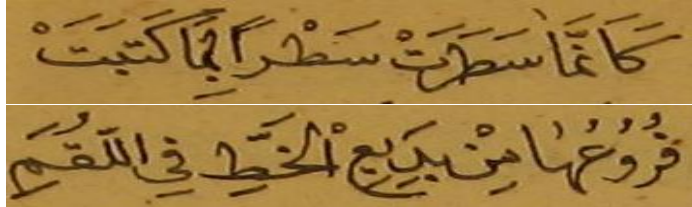 كَاَنَّمَا سَطَرَتْ سَطْراً لِمَا كَتَبَتْ
فُرُوْعُهَا مِنْ بَدِيْعِ الْخَطِّ فِي اللَّقَمِ